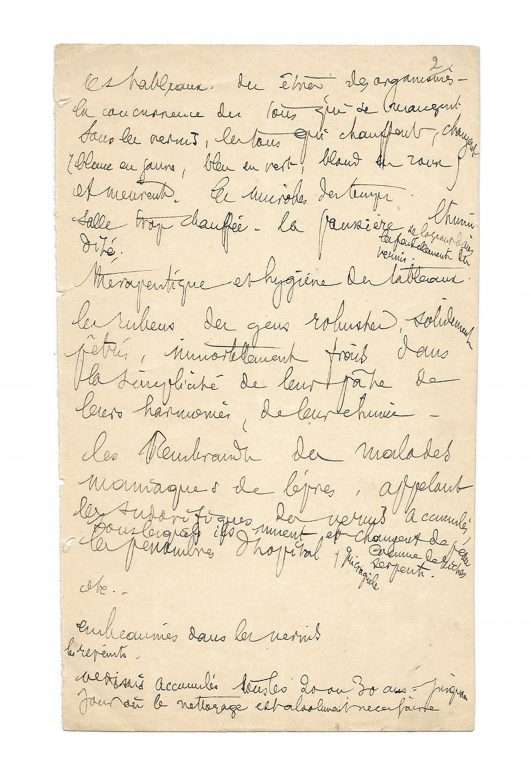 2
Les tableaux. des êtres des organismes -
la concurrence des tons qui se mangent
sous les vernis, les tons qui chauffent, changent
blanc en jaune, bleu en vert, blond en roux
et meurent. Les microbes des temps.
Salle trop chauffée - La poussière, l'humi
dité,
vernis.
Thérapeutique et hygiène des tableaux.
les rubens des gens robustes, solidement
pétris, immortellement frais dans
la simplicité de leur pâte de
leurs harmonies, de leur chimie -
les Rembrandt des malades
maniaques de lèpres, appelant
les sudorifiques des vernis accumulés
sous lesquels ils muent et changent de peau
les pénombres d'hôpital
comme de
serpent.
etc. -
embaumés dans les vernis
les repeints.
vernis accumulés tous les 20 ou 30 ans - jusqu'au
jour où le nettoyage est absolument necessaire